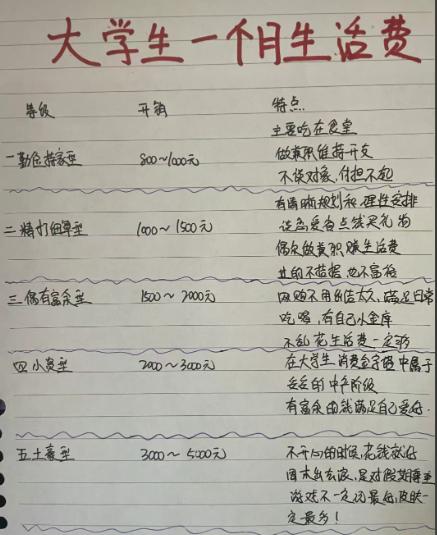 大学生一个月生活费
等级 开销 特点
主要吃在食堂
一勤俭持家型 800~1000元 做兼职维持开支
不谈对象,付担不起
有明确规划和理性安排
二精打细算型 1000~1500元 谈恋爱省点钱买礼物
偶尔做兼职赚生活费
过的不拮据也不富裕
三偶有富余型 1500~2000元 网购不用纠结太久,满足日常
吃喝,有自己小金库
不乱花生活费一定够
四小资型 2000~3000元 在大学生消费金字塔中属于
妥妥的中产阶级
有富余的钱满足自己爱好.
五土豪型 3000~5000元 不开心的时候,花钱就好
周末出去浪,是对假期尊重
游戏不一定玩最好,皮肤一
定最多!